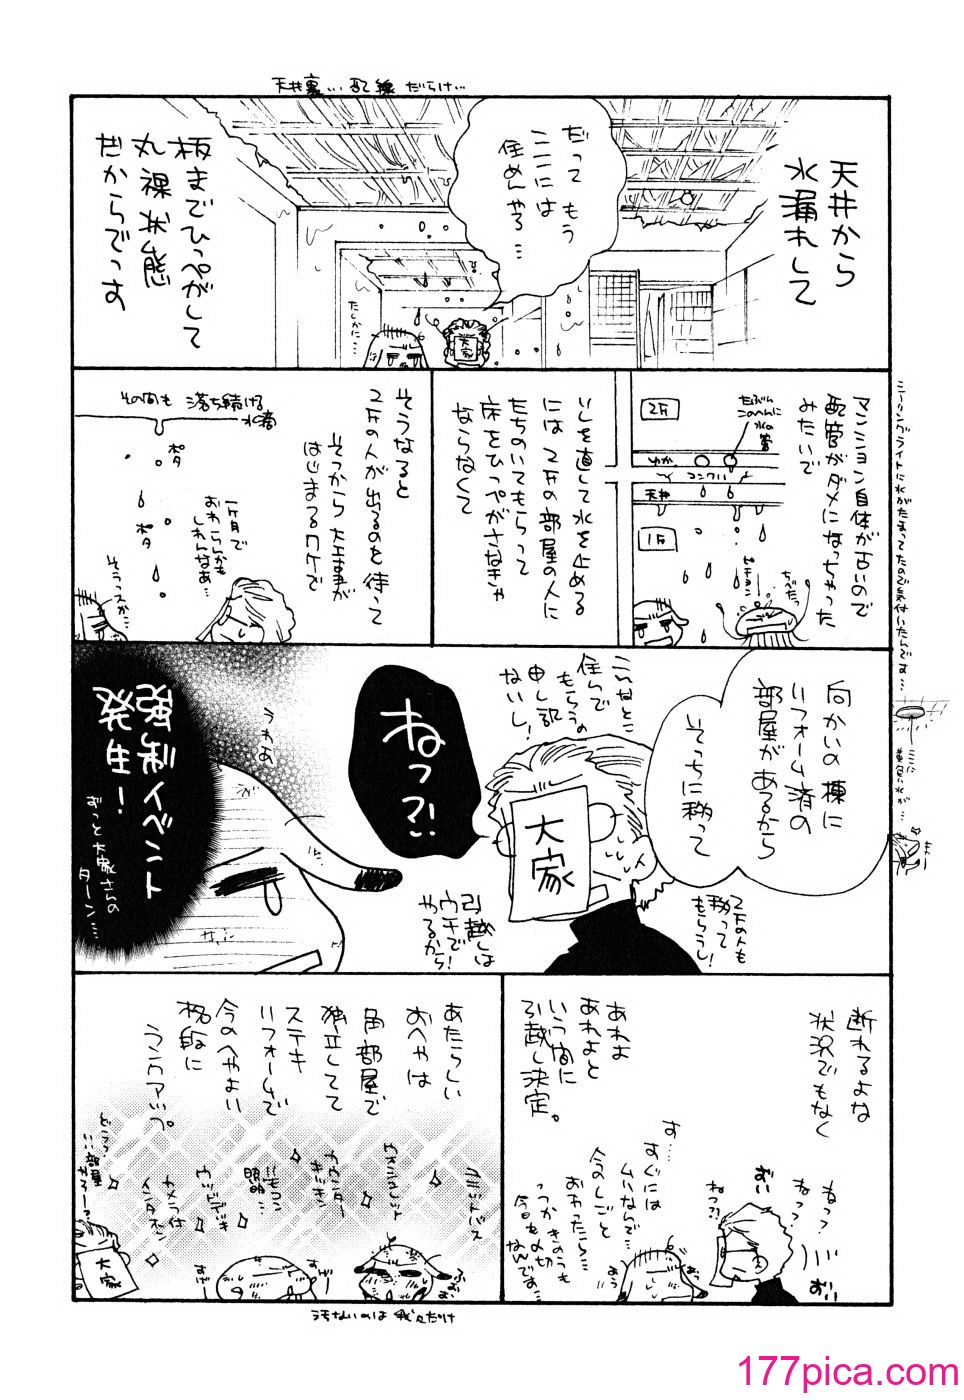 天井裏…配線だらけ…
天井から
水漏れして
だって もう
ここには
住めんやろ…
たしかに…
大家
板までひっぺがして
丸裸状態
だからでっす
マンション自体が古いので
配管がダメになっちゃった
みたいで
たぶん
このへんに
水の管
2F
ゆか
コンクリ
天井
1F
ピチョン
ちべたっ
シーリングライトに水がたまってたので気付いたんです…
ここに
黄色い水が…
いしを直して水を止める
には2Fの部屋の人に
たちのいてもらって
床をひっぺがさなきゃ
ならなくて
そうなると
2Fの人が出るのを待って
そっから大工事が
はじまるワケで
その間も落ち続ける
水滴
ポタ
ポタ
一ケ月で
おわらんかも
しれんなあ…
そうっスか…
向かいの棟に
リフォーム済の
部屋があるから
そっちに移って
2Fの人も
移って
もらうし!
こんなとこ
住んで
もらうの
申し訳
ないし!
大家
引越しは
ウチで
やるから!
ねっ?!
うわあ
強制イベント
発生!
ずっと大家さんの
ターン…
断れるよな
状況でもなく
ねっ?
ねっ?
おい
おい
ねっ?!
あれよ
あれよと
いう間に
引越し決定。
す……
すぐには
ムリなんで…
今のしごと
おわったら…
っつかきのうも
今日も〆切
なんでぁ…
あう
あたらしい
おへやは
角部屋で
独立してて
ステキ
リフォームで
今のへやよい
格段に
ランクアップ。
ウォシュレット
カウンター
キッチン
リモコン
照明
ウッドデッキ
カメラ付
インタホン
どうっ?
この部屋
かろーっ?
大家
すげー
すげ
汚ないのは我々だけ
177pica.com